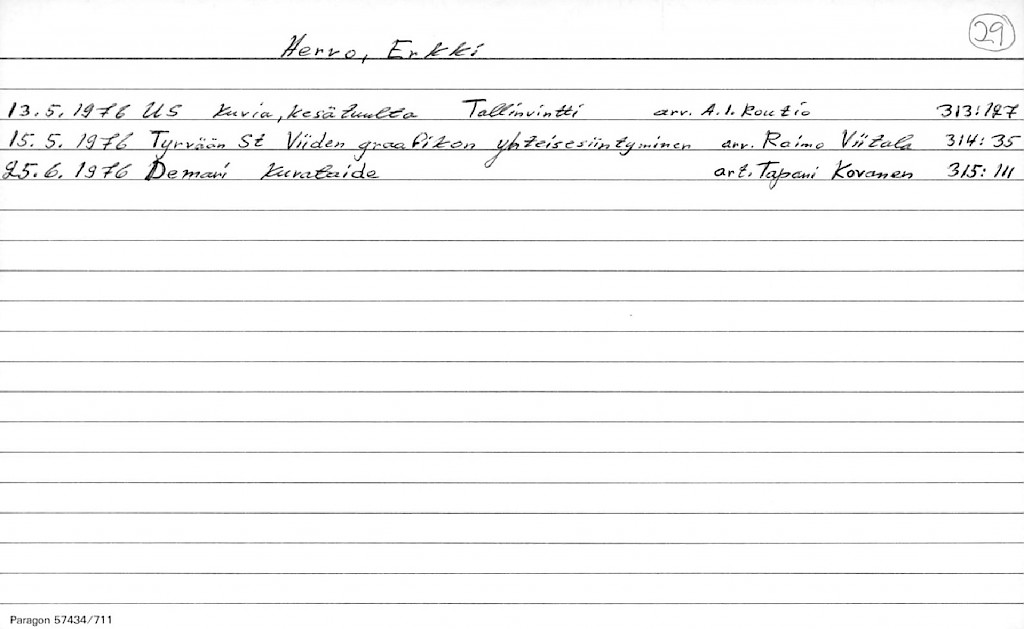 29
Hervo, Erkki
13.5.1976 US Kuvia, kesätuulta Tallinvintti arv. A.I. Routio 313:127
15.5.1976 Tyrvään St Viiden graafikon yhteisesiintyminen arv. Raimo Viitala 314:35
25.6.1976 Demari Kuvataide art. Tapani Kovanen 315:111
Paragon 57434/711